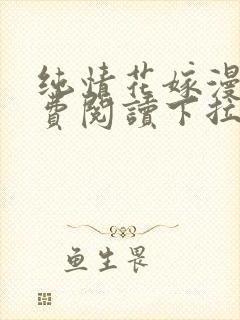 纯情花嫁漫
費閱讀下拉
鱼生畏